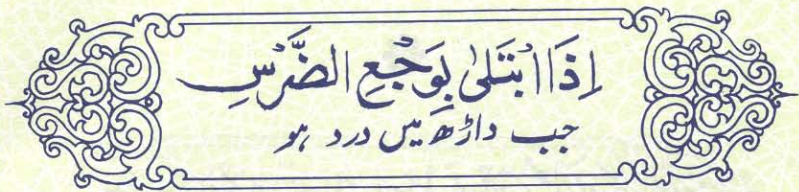 اِذَا ابْتَلٰى بِوَجْعِ الضَّرْسِ
جب داڑھ میں درد ہو